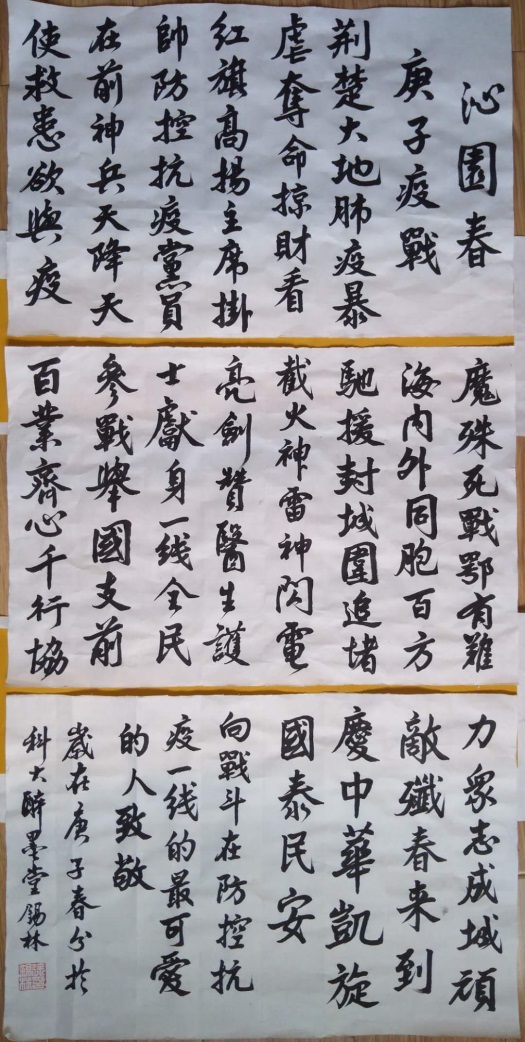 沁園春
庚子疫戰
荆楚大地肺疫暴
虐奪命掠財看
紅旗高揚主席掛
帥防控抗疫黨員
在前神兵天降天
使救患欲與疫
魔殊死戰鄂有難
海内外同胞百方
馳援封城圍追堵
截火神雷神閃電
亮劍贊醫生護
士獻身一线全民
參戰舉國支前
百業齊心千行協
力眾志成城頑
敵殲春来到
慶中華凱旋
國泰民安
向戰斗在防控抗
疫一线的最可愛
的人致敬
歲在庚子春分於
科大醉墨堂錫林